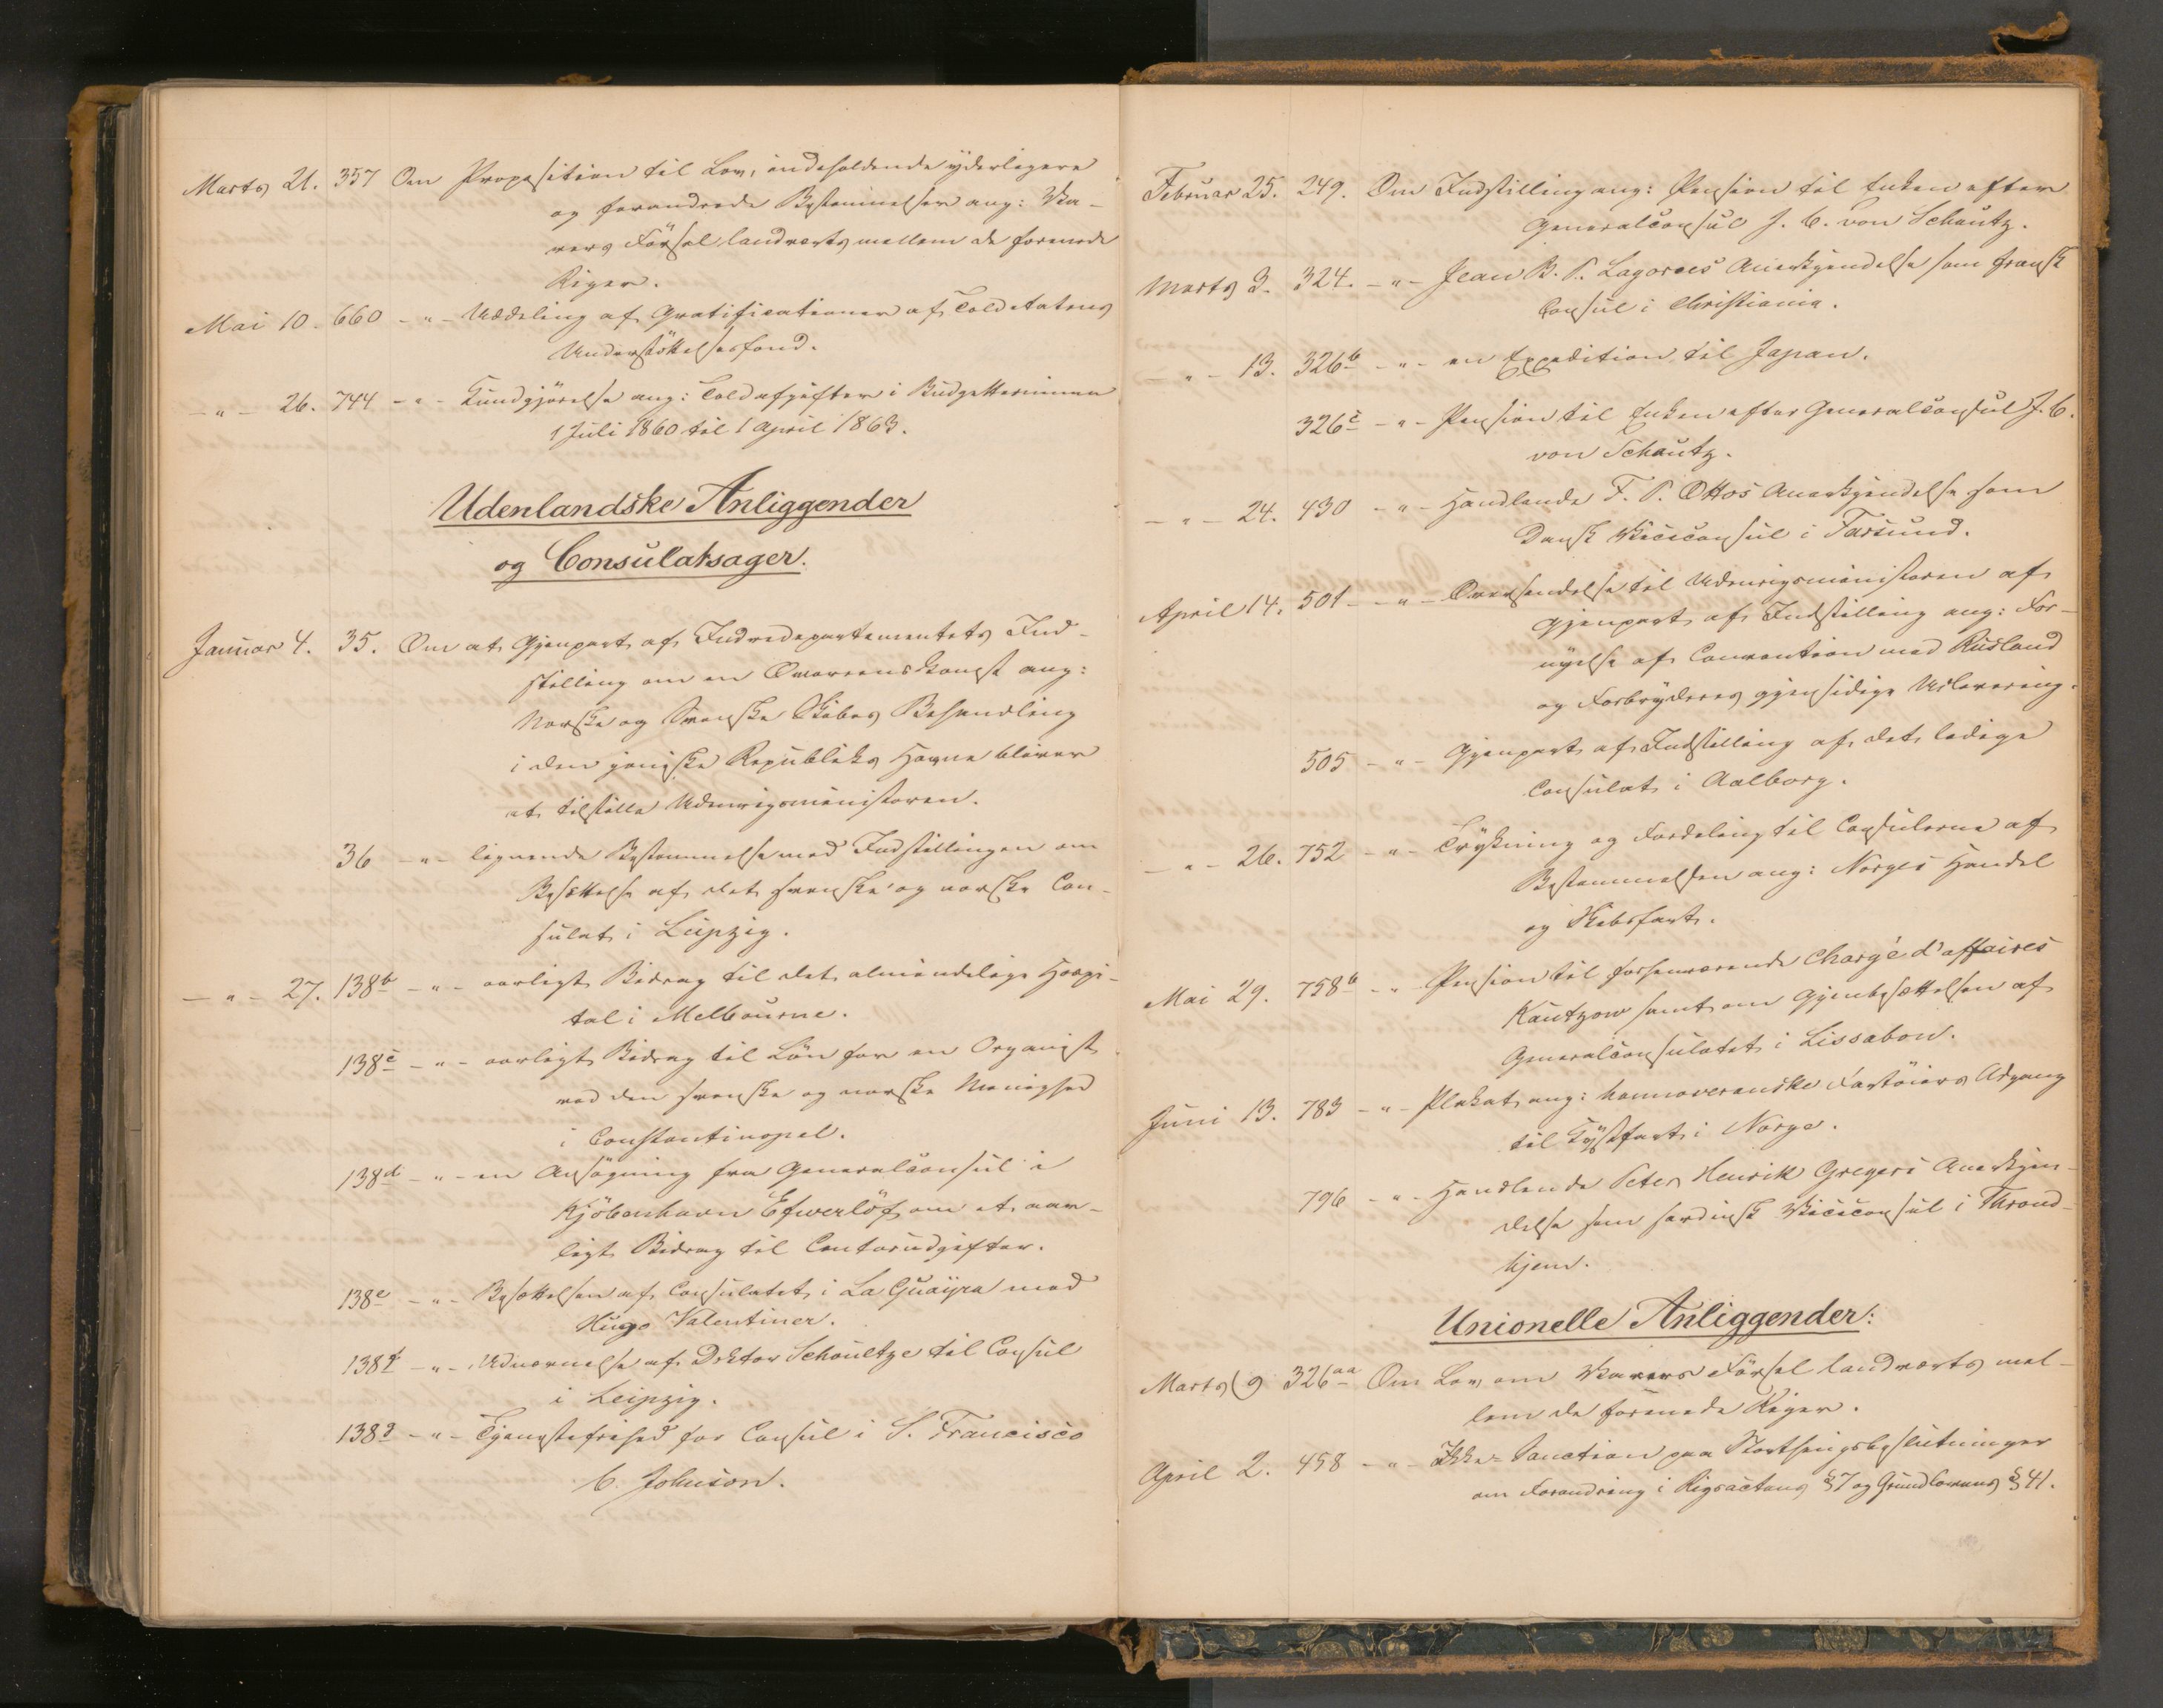 Marts 21. 357 Om Proposition til Lov, indeholdende yderligere
og forandrede Bestemmelser ang: Va-
rers Försel landværts mellem de forenede
Riger.
Mai 10. 660 - " - Uddeling af Gratificationer af Toldetatens
Understöttelsesfond.
- " - 26. 744 - " - Kundgjörelse ang: Toldafgifter i Budgetterminen
1 Juli 1860 til 1 April 1863.
Udenlandske Anliggender
og Consulatsager.
Januar 4. 35. Om at Gjenpart af Indredepartementets Ind-
stilling om en Overenskomst ang:
Norske og Svenske Skibes Behandling
i den joniske Republiks Havne bliver
at tilstille Udenrigsministeren.
36 - " - lignende Bestemmelse med Indstillingen om
Besættelse af det svenske og norske Con-
sulat i Leipzig.
- " - 27. 138b - " - aarligt Bidrag til det almindelige Hospi-
tal i Melbourne.
138c - " - aarligt Bidrag til Lön for en Organist
ved den svenske og norske Menighed
i Constantinopel.
138d - " - en Ansögning fra Generalconsul i
Kjöbenhavn Efwerlöf om et aar-
ligt Bidrag til Contorudgifter.
138e - " - Besættelsen af Consulatet i La Guayra med
Hugo Valentiner.
138f - " - Udnævnelse af Doktor Schoultze til Consul
i Leipzig.
138g - " - Tjenestefrihed for Consul i S. Francisco
C. Johnson.
Februar 25. 249. Om Indstilling ang: Pension til Enken efter
Generalconsul J. C. von Schautz.
Marts 3. 324. - " - Jean B. P. Lagorces Anerkjendelse som fransk
Consul i Christiania.
- " - 13. 326b - " - en Expedition til Japan.
326c - " - Pension til Enken efter Generalconsul J. C.
von Schautz.
- " - 24. 430 - " - Handlende F. P. Ottos Anerkjendelse som
Dansk Viceconsul i Farsund.
April 14. 501 - " - Oversendelse til Udenrigsministeren af
Gjenpart af Indstilling ang: For-
nyelse af Convention med Rusland
og Forbryderes gjensidige Udlevering.
505 - " - Gjenpart af Indstilling af det ledige
Consulat i Aalborg.
- " - 26. 752 - " - Trykning og Fordeling til Consulerne af
Bestemmelsen ang: Norges Handel
og Skibsfart.
Mai 29. 758b - " - Pension til forhenværende Chargé d'affaires
Kautzow samt om Gjenbesættelsen af
Generalconsulatet i Lissabon.
Juni 13. 783 - " - Plakat ang: hannoveranske Fartöiers Adgang
til Kystfart i Norge.
796 - " - Handlende Peter Henrik Gregers Anerkjen-
delse som sardinsk Viceconsul i Thrond-
hjem.
Unionelle Anliggender:
Marts 9 326aa Om Lov om Varers Försel landværts mel-
lem de forenede Riger.
April 2. 458 - " - Ikke-Sanction paa Storthingsbeslutninger
om Forandring i Rigsactens § 7 og Grundlovens § 41.